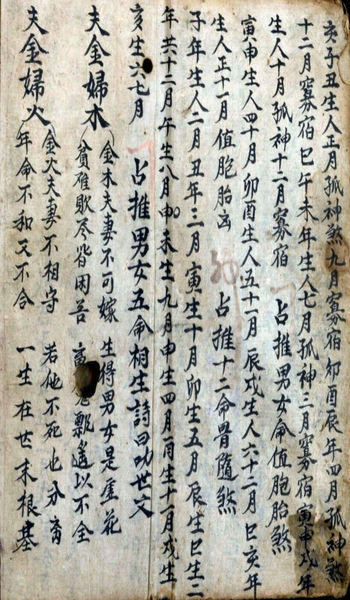 亥子丑生人正月孤神煞九月寡宿卯酉辰年四月孤神煞
十二月寡宿巳午未年生人七月孤神三月寡宿寅申戌年
生人十月孤神十二月寡宿 占推男女命值胞胎煞
寅申生人四十月卯酉生人五十一月辰戌生人六十二月巳亥年
生人正十一月值胞胎凶 占推十二命骨隨煞
子年生人二月丑年三月寅生十月卯生五月辰生巳生二
年共十二月午生八月申未生九月申生四月酉生十一月戌生
亥生六七月 占推男女五命相生詩曰功世文
夫金婦木 金木夫妻不可嫁 生得男女是虛花
貧难敗尽皆困苦 飄遙以不全
夫金婦火 金火夫妻不相守 若他不死也分离
年命不和又不合 一生在世末根基